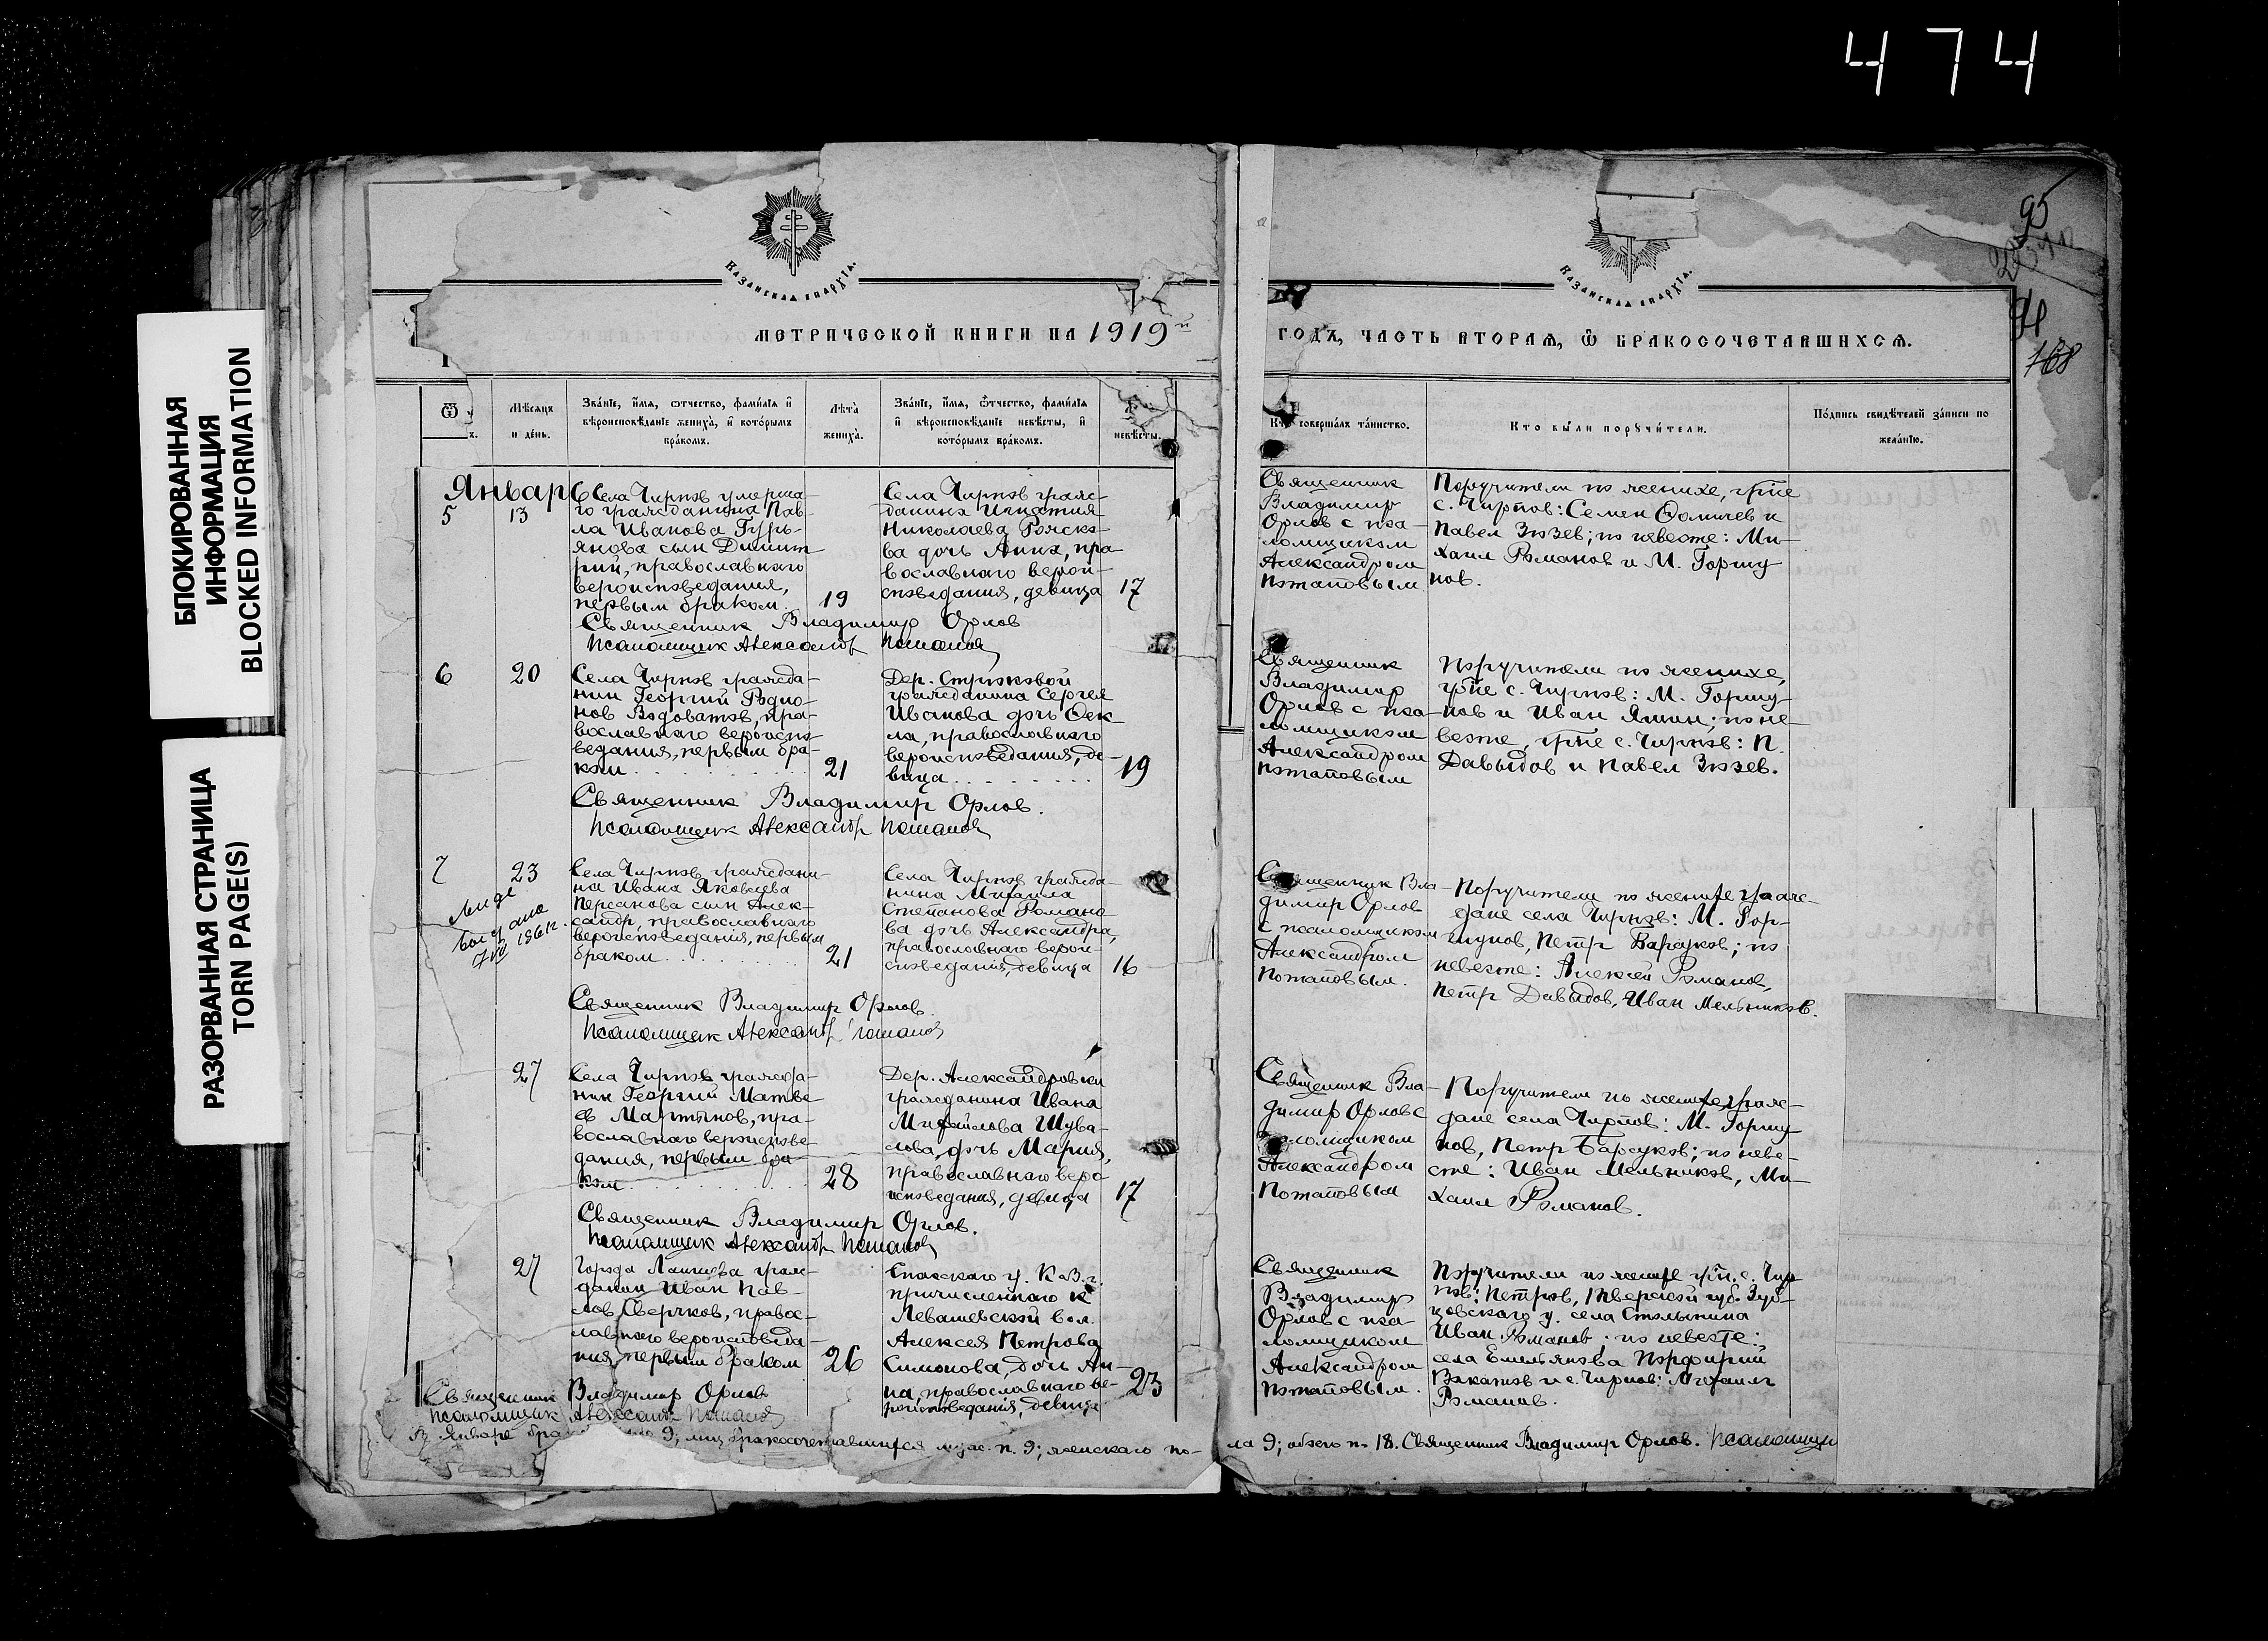 474
БЛОКИРОВАННАЯ
ИНФОРМАЦИЯ
BLOCKED INFORMATION
РАЗОРВАННАЯ СТРАНИЦА
TORN PAGE(S)
95
168
Казанская епархія.
Казанская епархія.
МЕТРИЧЕСКОЙ КНИГИ НА 1919й
ГОДЪ, ЧАСТЬ ВТОРАЯ, Ѿ БРАКОСОЧЕТАВШИХСЯ.
Мѣсяцъ
и день.
Званіе, имя, отчество, фамилія и
вѣроисповѣданіе жениха, и которымъ
бракомъ.
Лѣта
жениха.
Званіе, имя, отчество, фамилія
и вѣроисповѣданіе невѣсты, и
которымъ бракомъ.
невѣсты.
Кто совершалъ таинство.
Кто были поручители.
Подпись свидѣтелей записи по
желанію.
Январь
5
13
Села Чирпов умерша-
го гражданина Пав-
ла Иванова Гурь-
янова сын Димит
рий, православнаго
вероисповедания,
первым браком.
19
Села Чирпов граж-
данина Игнатия
Николаева Ряско-
ва дочь Анна, пра
вославнаго верои-
споведания, девица
17
Священник
Владимир
Орлов с пса-
ломщиком
Александром
Потаповым
Поручители по женихе, гр-не
с. Чирпов: Семен Фомичев и
Павел Зюзев; по невесте: Ми-
хаил Романов и М. Горшу
нов.
Священник Владимир Орлов
Псаломщик Александр Потапов
6
20
Села Чирпов гражда-
нин Георгий Родио-
нов Водоватов, пра-
вославнаго вероиспо
ведания, первым бра-
ком
21
Дер.
гражданина Сергея
Иванова дочь Фек-
ла, православнаго
вероисповедания, де-
вица
19
Священник
Владимир
Орлов с пса-
ломщиком
Александром
Потаповым
Поручители по женихе,
гр-не с. Чирпов: М. Горшу-
нов и Иван Яшин; по не-
весте, гр-не с. Чирпов: П.
Давыдов и Павел Зюзев.
Священник Владимир Орлов.
Псаломщик Александр Потапов
7
23
выдана
Села Чирпов граждани-
на Ивана Яковлева
Персанова сын Алек-
сандр, православнаго
вероисповедания, первым
браком
21
Села Чирпов гражда-
нина Михаила
Степанова Романо-
ва дочь Александра,
православнаго верои-
споведания, девица
16
Священник Вла-
димир Орлов
с псаломщиком
Александром
Потаповым.
Поручители по женихе гражс-
дане села Чирпов: М. Гор-
шунов, Петр Барсуков; по
невесте: Алексей Романов,
Петр Давыдов, Иван Мельников.
Священник Владимир Орлов.
Псаломщик Александр Потапов
27
Села Чирпов гражда-
нин Георгий Матве
ев Мартынов, пра-
вославнаго вероиспове-
дания, первым бра
ком
28
Дер. Александровки
гражданина Ивана
Михайлова Шува-
лова, дочь Мария,
православнаго веро
исповедания, девица
17
Священник Вла-
димир Орлов с
псаломщиком
Александром
Потаповым
Поручители по женихе, граж-
дане села Чирпов: М. Горшу
нов, Петр Барсуков; по неве-
сте: Иван Мельников, Ми-
хаил Романов.
Священник Владимир Орлов.
Псаломщик Александр Потапов
27
Города Лаишева граж-
данин Иван Пав-
лов Сверчков, правос-
лавнаго вероисповеда-
ния, первым браком
26
Спасскаго у. К.
причисленнаго к
Левашевской вол.
Алексея Петрова
Симонова, дочь Ан-
на, православнаго ве-
роисповедания, девица
23
Священник
Владимир
Орлов с пса-
ломщиком
Александром
Потаповым.
Поручители по женихе гр-н. с. Чир
пов: Петров, Тверской губ. Зуб-
цовскаго у. села
Иван Романов. по невесте:
села Емельянова Порфирий
и с. Чирпов: Михаил
Романов.
Священник Владимир Орлов
Псаломщик Александр Потапов
В Январе 9; лиц бракосочетавшихся муж. п. 9; женскаго по-ла 9; обоего п. 18. Священник Владимир Орлов. Псаломщик